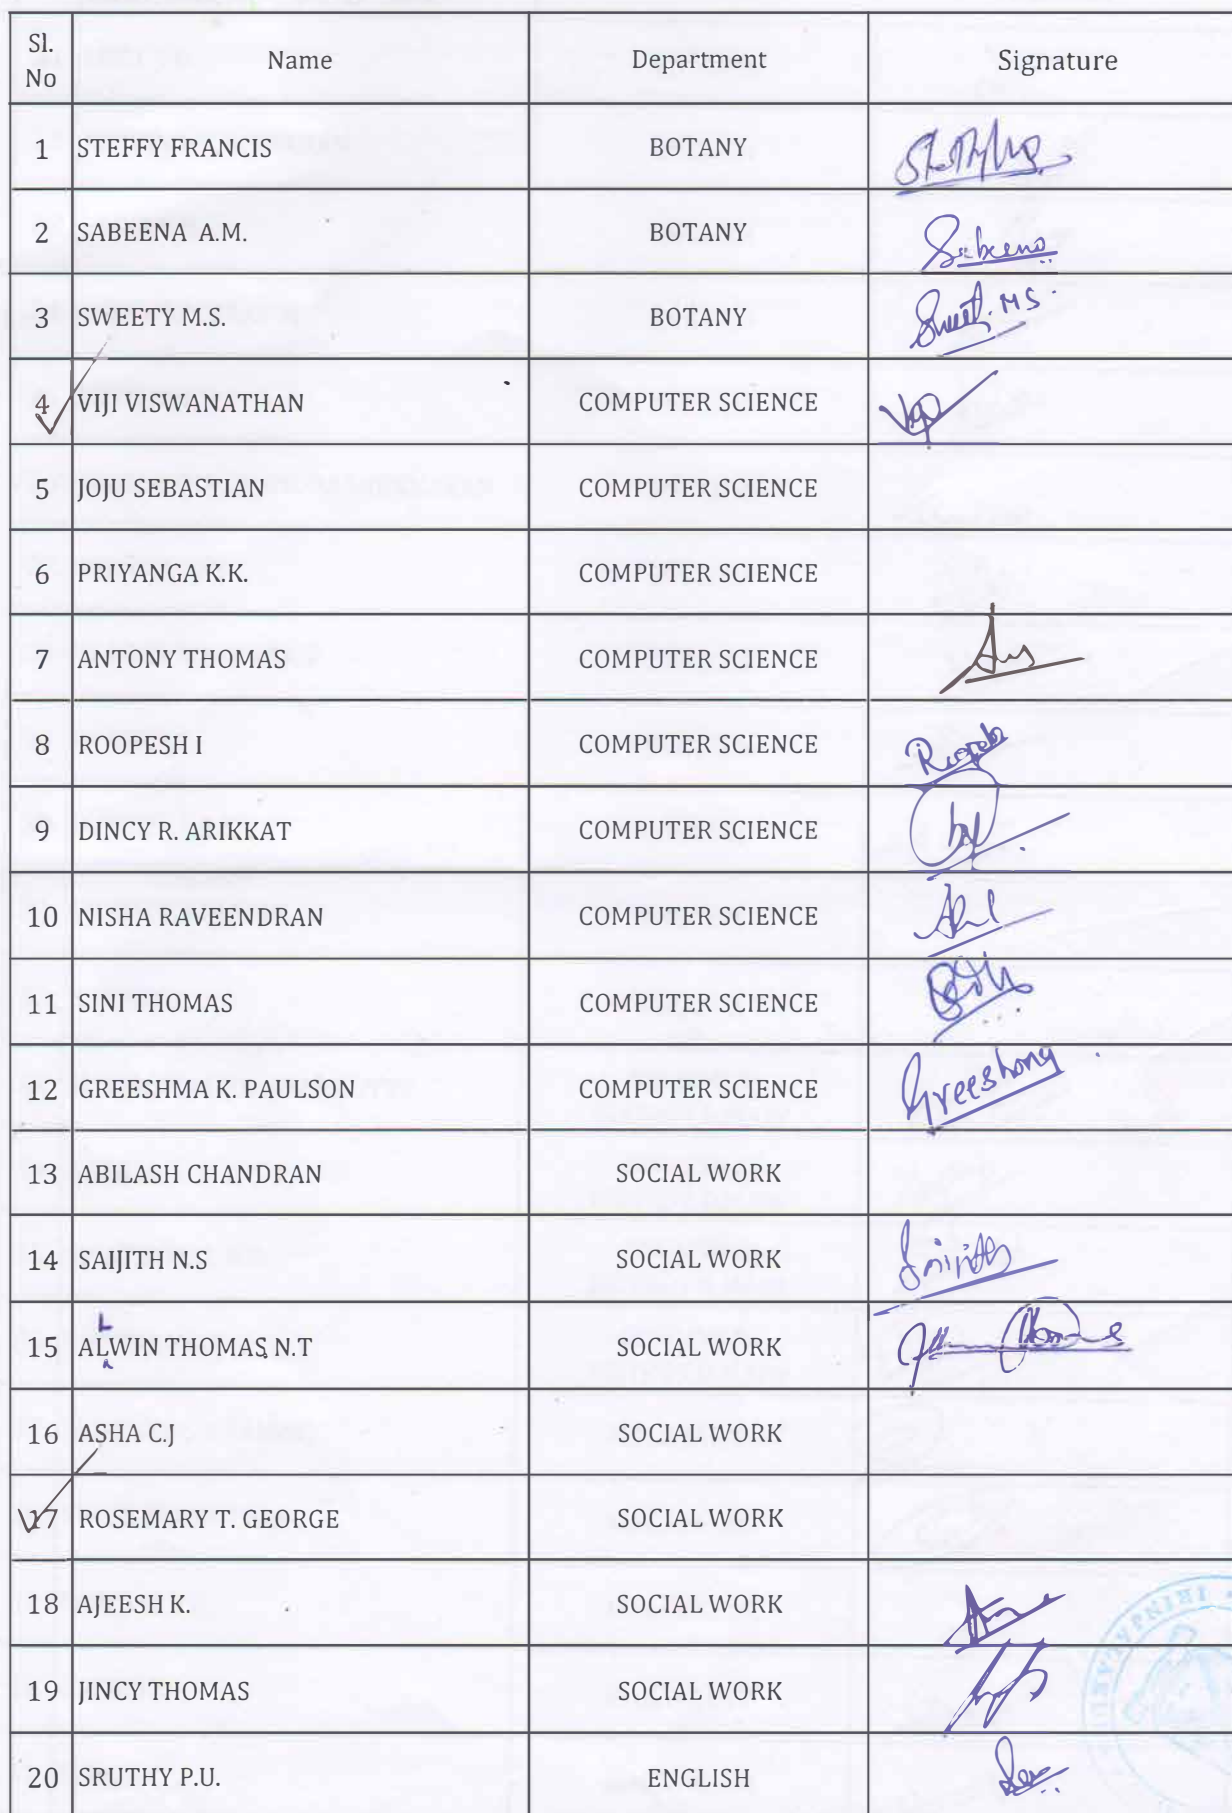 Sl. No Name Department Signature
1 STEFFY FRANCIS BOTANY
2 SABEENA A.M. BOTANY Sabeena
3 SWEETY M.S. BOTANY Sweety. M S.
4 VIJI VISWANATHAN COMPUTER SCIENCE
5 JOJU SEBASTIAN COMPUTER SCIENCE
6 PRIYANGA K.K. COMPUTER SCIENCE
7 ANTONY THOMAS COMPUTER SCIENCE
8 ROOPESH I COMPUTER SCIENCE
9 DINCY R. ARIKKAT COMPUTER SCIENCE
10 NISHA RAVEENDRAN COMPUTER SCIENCE
11 SINI THOMAS COMPUTER SCIENCE
12 GREESHMA K. PAULSON COMPUTER SCIENCE
13 ABILASH CHANDRAN SOCIAL WORK
14 SAIJITH N.S SOCIAL WORK
15 ALWIN THOMAS N.T SOCIAL WORK
16 ASHA C.J SOCIAL WORK
17 ROSEMARY T. GEORGE SOCIAL WORK
18 AJEESH K. SOCIAL WORK
19 JINCY THOMAS SOCIAL WORK
20 SRUTHY P.U. ENGLISH